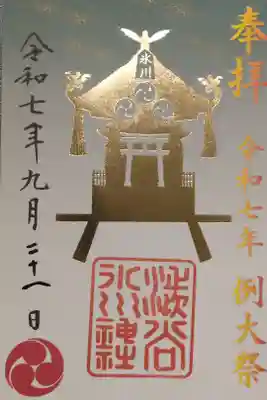 奉拝
令和七年 例大祭
氷川
澁谷
氷川神社
令和七年九月二十八日